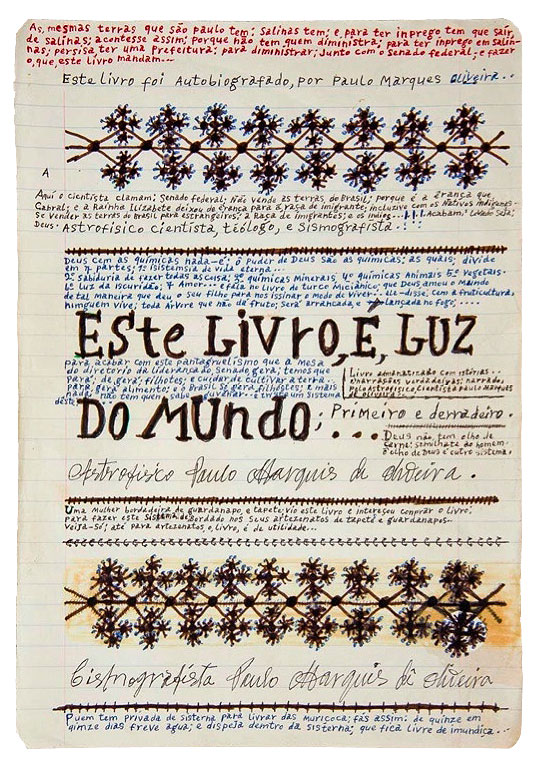 As, mesmas terras que são paulo tem; salinas tem; e para ter inprego tem que sair,
de salinas; acontesse assim, porque não tem quem diministra; para ter inprego em salin-
nas; persisa, ter uma Prefeitura; para diministrar; Junto com o Senado federal; e fazer
o, que, este Livro mandam...
Este livro foi Autobiografado, por Paulo Marques oliveira...
A
Aqui o cientista clamam; Senado federal; Não vende as terras, do Brasil, porque é a Erança que
Cabral; e a Rainha Elizabete deixou de erança para a raça de imigrante; inclusive com os Nativos indigenos
Se vender as terras do Brasil para estrangeiros; a Raça de imigrantes; e os indios...!!! Acabam:
Deus: Astrofisico cientista, teólogo, e Sismografista.:!!
Deus cem as químicas nada-é; o puder de Deus são as químicas; as quais; divide
em 7 partes; 1º isistensia de vida eterna...
2º sabiduria de fazer todas as coisa; 3º químicas Minerais 4º químicas Animais 5º Vegetais-
6º Luz da iscuridão; 7 Amor... e fala no livro de turco Miciânico; que Deus amou o Mundo
de tal maneira que deu o seu filho para nos issinar o modo de viver... ele-disse; cem a fruticultura,
ninguém vive; toda Arvore que não da fruto; Será arrancada, e lançada no fogo;....
Este LiVRO, E, LUZ
para acabar com este pantagruelismo que a mesa
do diretorio da liderança, Senado, gera; temos que
para; de gera; filhotes; e cuidar de cultivar a terra..
para gera alimento; o Brasil Só gera filhotes; e mais
nada não tem quem sabe
Livro
e narrasões verdadeiras; narrado,
pelo Astrofisico, cientista paulo Marques
de oliveira
DO MUNDO; Primeiro e derradeiro.
....
Deus não, tem olho de
carne; simulhate do homem-
o olho de Deus é outro sistema.
Astrofisico Paulo Marquis di oliveira.
Uma Mulher bordadeira de guardanapo, e tapete; vio este livro e intereçou conprar o livro;
para fazer este Sistema de bordado nos Seus artezenatos de tapete e guardanapos-
Veija-Só; até para artezenatos, o, Livro, é de utilidade...
Cismografista Paulo Marquis di oliveira
Puem tem privada de sisterna para livrar das Muriçoca; fas assim: de quinze em
quinze dias freve agua; e dispeja dentro da sisterna; que fica livre de imundiça...